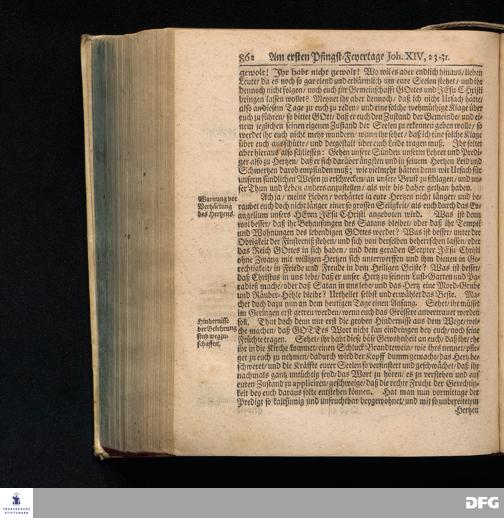 862 Am ersten Pfingst-Feyertage Joh. XIV, 23-31.
gewolt! Ihr habt nicht gewolt! Wo wil es aber endlich hinaus/ lieben
Leute/ da es noch so gar elend und erbärmlich um eure Seelen stehet/ und ihr
dennoch nicht folgen/ noch euch zur Gemeinschafft GOttes und JEsu Christi
bringen lassen wollet? Meynet ihr aber dennoch/ daß ich nicht Ursach hätte/
also an diesem Tage zu euch zu reden/ und eine solche wehmütige Klage über
euch zu führen/ so bittet GOtt/ daß er euch den Zustand der Gemeinde/ und ei-
nem jeglichen seinen eigenen Zustand der Seelen zu erkennen geben wolle/ so
werdet ihr euch nicht mehr wundern/ wenn ihr sehet/ daß ich eine solche Klage
über euch ausschütte/ und dergestalt über euch Leide tragen muß. Ihr soltet
aber hieraus also schliessen: Gehen unsere Sünden unserm Lehrer und Predi-
ger also zu Hertzen/ daß er sich darüber ängsten und in seinem Hertzen Leid und
Schmertzen darob empfinden muß; wie vielmehr hätten denn wir Ursach für
unserm sündlichen Wesen zu erschrecken/ an unsere Brust zu schlagen/ und un-
ser Thun und Leben anders anzustellen/ als wir bis daher gethan haben.
Warnung vor
Verhärtung
des Hertzens.
Ach ja/ meine Lieben/ verhärtet ja eure Hertzen nicht länger/ und be-
raubet euch doch nicht länger einer so grossen Seligkeit/ als euch durch das Ev-
angelium unsers HErrn JEsu Christi angeboten wird. Was ist denn
wol besser/ daß ihr Behausungen des Satans bleibet/ oder daß ihr Tempel
und Wohnungen des lebendigen GOttes werdet? Was ist besser/ unter der
Obrigkeit der Finsterniß stehen/ und sich von derselben beherrschen lassen/ oder
das Reich GOttes in sich haben/ und dem geraden Scepter JEsu Christi
ohne Zwang mit willigen Hertzen sich unterwerffen und ihm dienen in Ge-
rechtigkeit/ in Friede und Freude in dem Heiligen Geiste? Was ist besser/
daß Christus in uns lebe/ daß er unser Hertz zu seinem Lust-Garten und Pa-
radieß mache/ oder daß Satan in uns lebe/ und das Hertz eine Mord-Grube
und Räuber-Höhle bleibe? Urtheilet selbst und erwählet das Beste. Ma-
chet doch dazu nun an dem heutigen Tage einen Anfang. Sehet/ ihr müsset
im Geringen erst getreu werden/ wenn euch das Grössere anvertrauet werden
Hindernisse
der Bekehrung
sind wegzu-
schaffen.
soll. Thut doch denn nur erst die groben Hindernisse aus dem Wege/ wel-
che machen/ daß GOTTes Wort nicht kan eindringen bey euch/ noch seine
Früchte tragen. Sehet/ ihr habt diese böse Gewohnheit an euch/ daß ihr/ ehe
ihr in die Kirche kommet/ einen Schluck Brandtewein/ wie ihrs nennet/ pfle-
get zu euch zu nehmen/ dadurch wird der Kopff dumm gemacht/ das Hertz be-
schweret/ und die Kräffte eurer Seelen so verfinstert und geschwächet/ daß ihr
nachmals gantz untüchtig seyd/ das Wort zu hören/ es zu verstehen und auf
euren Zustand zu appliciren/ geschweige/ daß die rechte Frucht der Gerechtig-
keit bey euch daraus solte entstehen können. Hat man nun vormittage der
Predigt so kaltsinnig und unfruchtbar beygewohnet/ und mit so unbereitetem
Hertzen
FRANCKESCHE
STIFTUNGEN
DFG